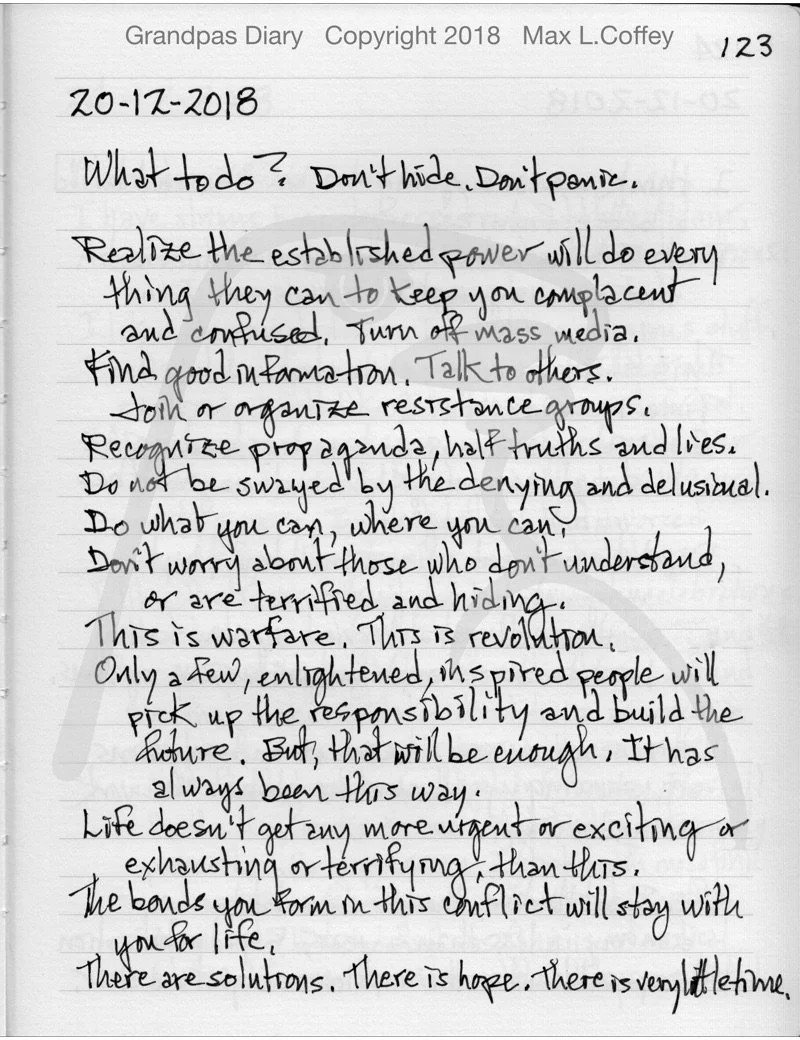 Grandpas Diary Copyright 2018 Max L.Coffey
123
20-12-2018
What to do? Don't hide. Don't panic.
Realize the established power will do every
thing they can to keep you complacent
and confused. Turn off mass media.
Find good information. Talk to others.
Join or organize resistance groups.
Recognize propaganda, half truths and lies.
Do not be swayed by the denying and delusional.
Do what you can, where you can.
Don't worry about those who don't understand,
or are terrified and hiding.
This is warfare. This is revolution.
Only a few, enlightened, inspired people will
pick up the responsibility and build the
future. But, that will be enough. It has
always been this way.
Life doesn't get any more urgent or exciting or
exhausting or terrifying, than this.
The bonds you form in this conflict will stay with
you for life.
There are solutions. There is hope. There is very little time.